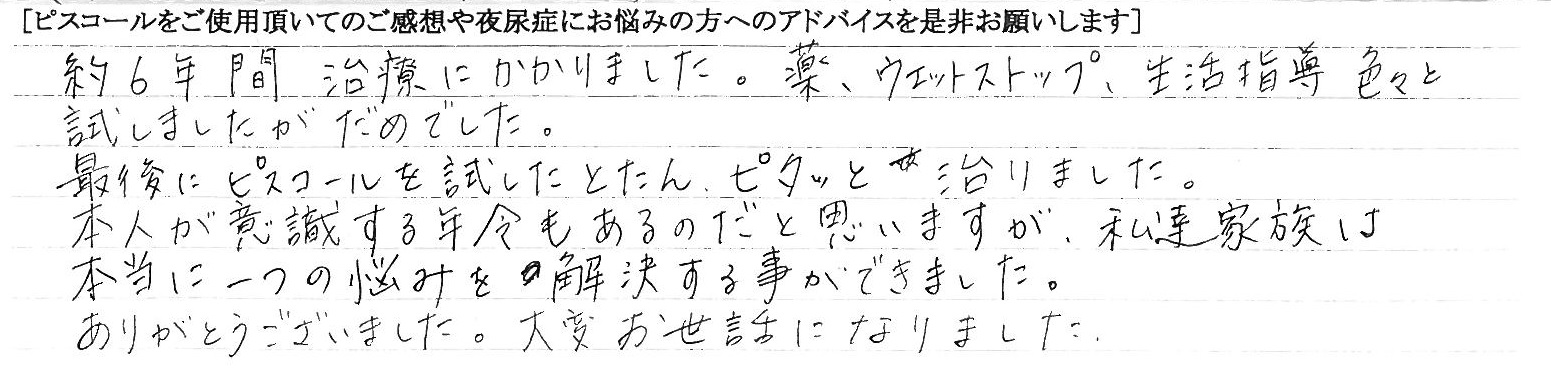 [ピスコールをご使用頂いてのご感想や夜尿症にお悩みの方へのアドバイスを是非お願いします]
約6年間 治療にかかりました。薬、ウエットストップ、生活指導 色々と
試しましたがだめでした。
最後にピスコールを試したとたん、ピタッと治りました。
本人が意識する年令もあるのだと思いますが、私達家族は
本当に一つの悩みを解決する事ができました。
ありがとうございました。大変お世話になりました.